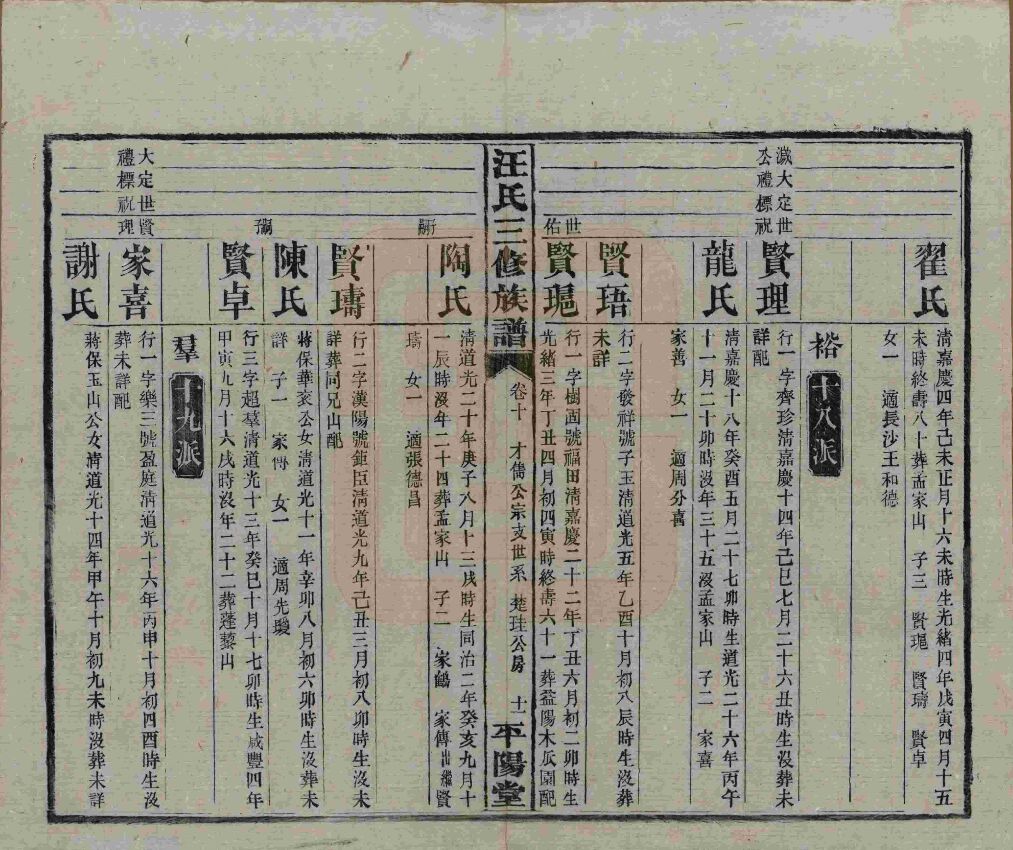 翟氏
淸嘉慶四年己未正月十六未時生光緒四年戊寅四月十五
未時終壽八十葬孟家山 子三 賢琩 賢璹 賢卓
女一 適長沙王和德
裕 十八派
滅大定世
公禮標祝
賢理
行一字齊珍淸嘉慶十四年己巳七月二十六丑時生沒葬未
詳配
龍氏
淸嘉慶十八年癸酉五月二十七卯時生道光二十六年丙午
十一月二十卯時沒年三十五沒孟家山 子二 家喜
家善 女一 適周分喜
賢珸
行二字發祥號子玉淸道光五年乙酉十月初八辰時生沒葬
未詳
世
佑
賢琩
行一字樹固號福田淸嘉慶二十二年丁丑六月初二卯時生
光緒三年丁丑四月初四寅時終壽六十一葬益陽木瓜園配
汪氏三修族譜 卷十 才儒公宗支世系 楚珪公房 十一 平陽堂
陶氏
淸道光二十年庚子八月十三戌時生同治二年癸亥九月十
一辰時沒年二十四葬孟家山 子二 家鶴 家傳出繼賢
璹 女一 適張德昌
嗣
賢璹
行二字漢陽號鉅臣淸道光九年己丑三月初八卯時生沒未
詳葬同兄山配
陳氏
蔣保華袞公女淸道光十一年辛卯八月初六卯時生沒葬未
詳 子一 家傳 女一 適周先駿
賢卓
行三字超羣淸道光十三年癸巳十月十七卯時生咸豐四年
甲寅九月十六戌時沒年二十二葬蓬藜山
羣 十九派
大定世賢
禮標祝理
家喜
行一字樂三號盈庭淸道光十六年丙申十月初四酉時生沒
葬未詳配
謝氏
蔣保玉山公女淸道光十四年甲午十月初九未時沒葬未詳